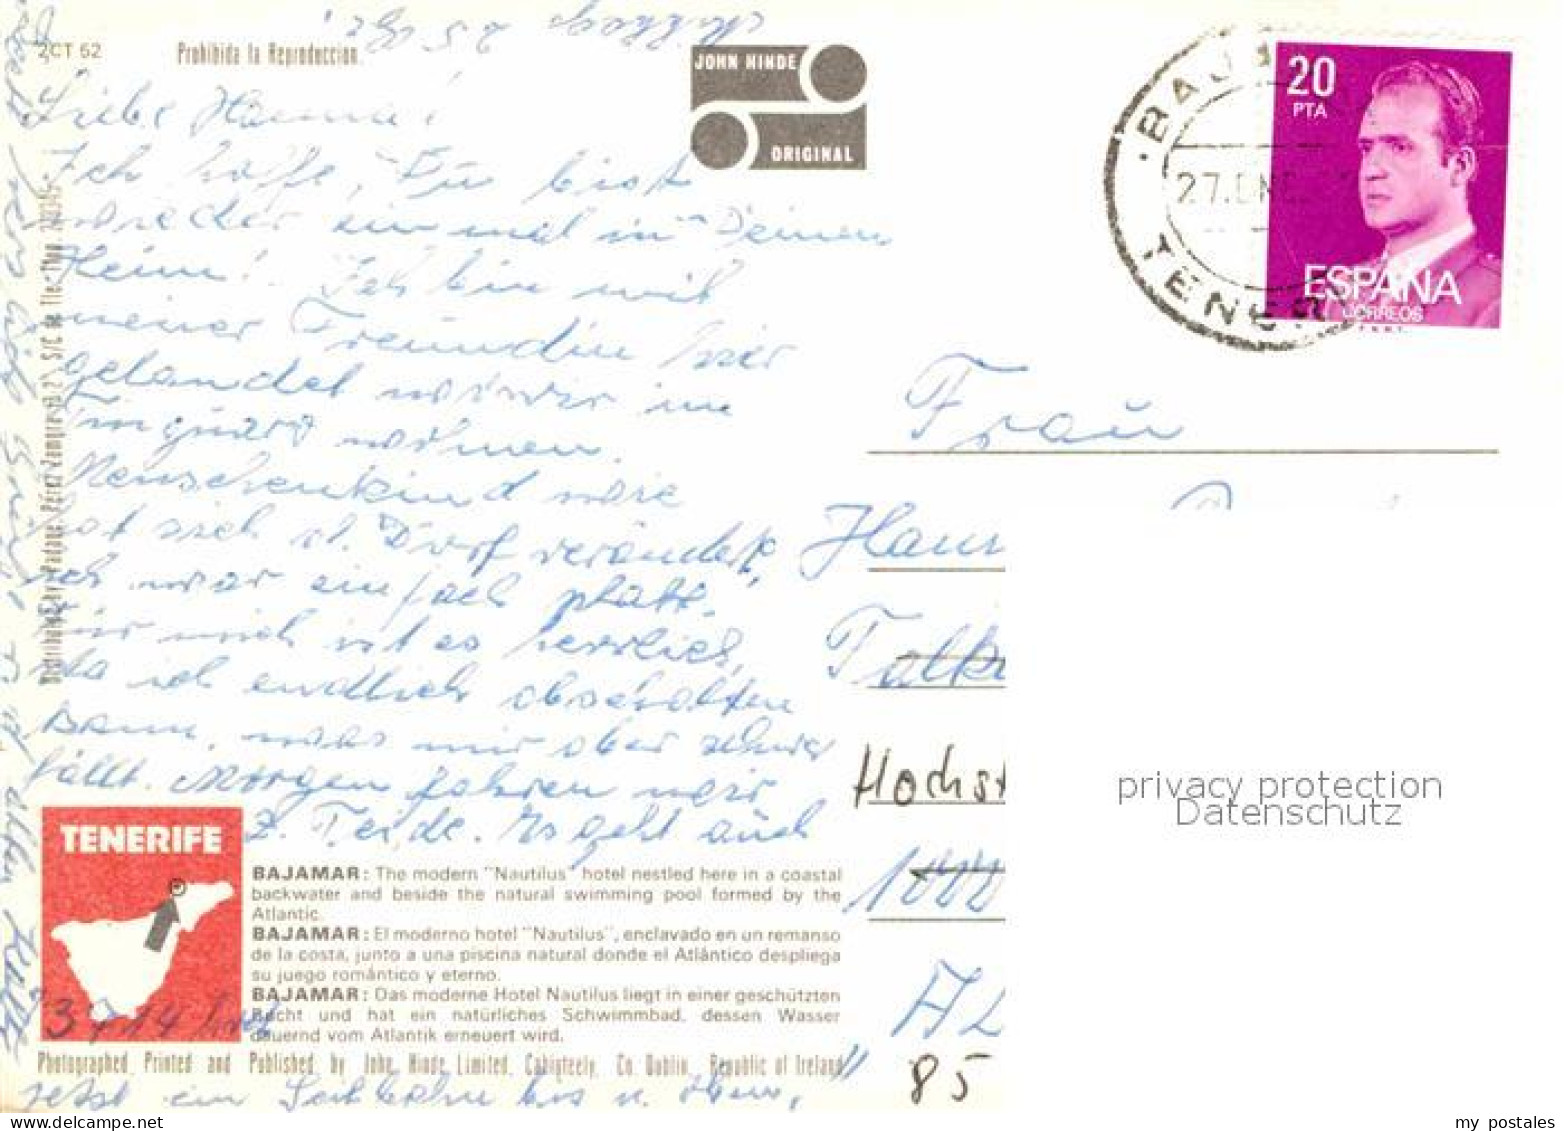 2CT 52
Prohibida la Reproduccion.
JOHN HINDE
ORIGINAL
BAJ
27.ENE
TENER
20
PTA
ESPAÑA
CORREOS
F.N.M.T.
Liebe Hanna!
Ich hoffe, Du bist
wieder einmal in Deinem
Heim! Ich bin mit
meiner Freundin hier
gelandet wo wir im
wohnen.
Menschenkind wie
hat sich d. Dorf verändert,
ich war einfach platt.
Für mich ist es herrlich,
da ich endlich abschalten
kann, was mir aber schwer
fällt. Morgen fahren wir
z. Teide. Es geht auch
jetzt ein Seilbahn bis n. oben,
Frau
Hann
Talk
Hochst
1000
85
privacy protection
Datenschutz
TENERIFE
BAJAMAR: The modern "Nautilus" hotel nestled here in a coastal
backwater and beside the natural swimming pool formed by the
Atlantic.
BAJAMAR: El moderno hotel "Nautilus", enclavado en un remanso
de la costa, junto a una piscina natural donde el Atlántico despliega
su juego romántico y eterno.
BAJAMAR: Das moderne Hotel Nautilus liegt in einer geschützten
Bucht und hat ein natürliches Schwimmbad, dessen Wasser
dauernd vom Atlantik erneuert wird.
Photographed, Printed and Published by John Hinde Limited, Cabinteely, Co. Dublin, Republic of Ireland
my postales